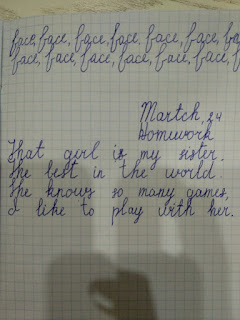 face, face, face, face, face, face, fa
face, face, face, face, face, face, f
Martch 24
Homework
That girl is my sister,
She best in the world.
She knows so many games,
I like to play with her.